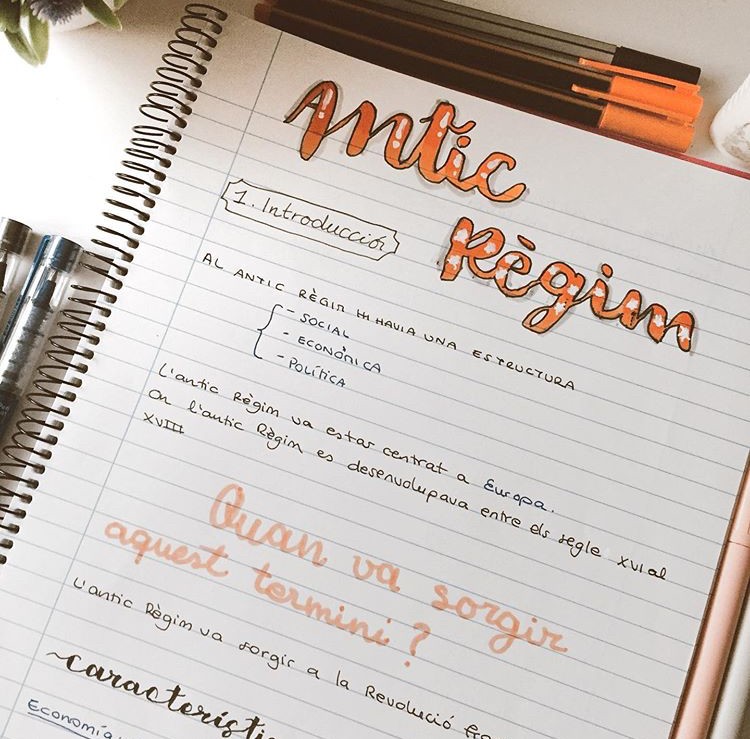 Antic
Règim
1. Introducció
AL ANTIC RÈGIM HI HAVIA UNA ESTRUCTURA
- SOCIAL
- ECONÒMICA
- POLÍTICA
L'antic Règim va estar centrat a Europa.
On l'antic Règim es desenvolupava entre els segle XVI al
XVIII
Quan va sorgir
aquest termini?
L'antic Règim va sorgir a la Revolució
Economía: